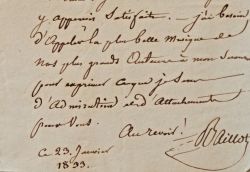 y apparais satisfaite. j'ai besoin
d'appeler la plus belle musique de
nos plus grands auteurs à mon secours
pour exprimer ce que je sens
d'admiration et d'attachement
pour vous.
Au revoir!
Baillot
ce 23. Janvier
1833.